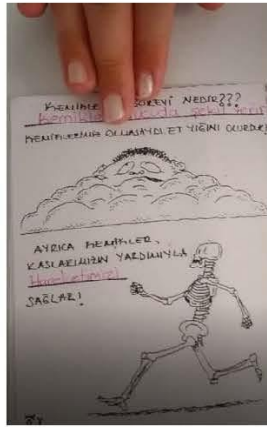 KEMİKLE GÖREVİ NEDİR???
Kemikle ucuda şekil verir
KEMİKLERİMİZ OLMASAYDI, ET YIĞINI OLURDUK
AYRICA KEMİKLER,
KASLARIMIZIN YARDIMIYLA
SAĞLAR!